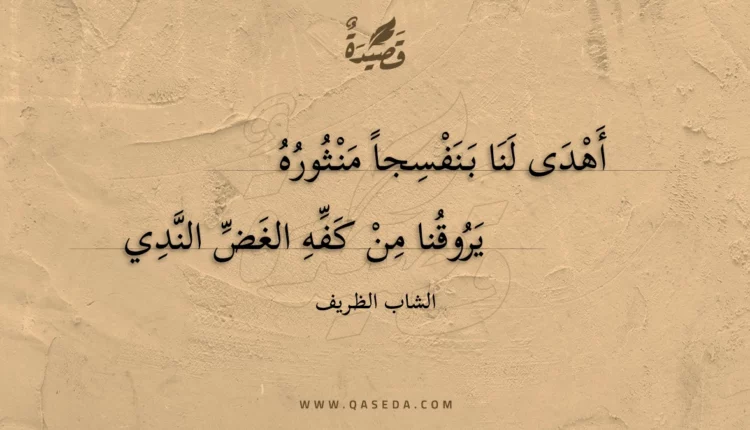 قَصِيدَةٌ
أَهْدَى لَنَا بَنَفْسِجاً مَنْثُورُهُ
يَرُوقُنا مِنْ كَفِّهِ الغَضِّ النَّدِي
الشاب الظريف
WWW.QASEDA.COM